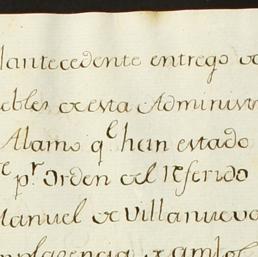 lantecedente entrego de
ebles de esta Administr
Alamo q.e han estado
p.r orden del Referido
Manuel de Villanueva
mplacencia de ambos